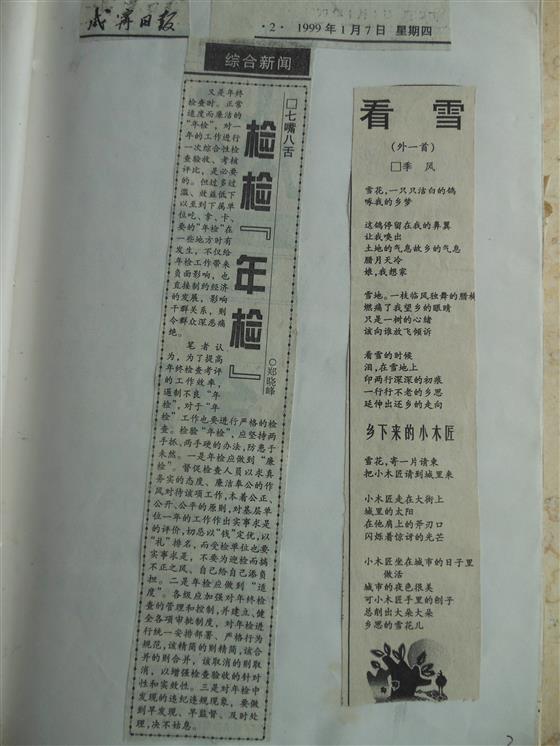 咸宁日报
·2· 1999年1月7日 星期四
综合新闻
□七嘴八舌
检检『年检』
○郑晓峰
又是年终
检查时。正常
适度而廉洁的
“年检”,对一
年的工作进行
一次综合性检
查验收、考核
评比,是必要
的。但过多过
滥、效益低下
以至到下属单
位吃、拿、卡、
要的“年检”在
一些地方时有
发生,不仅给
年检工作带来
负面影响,也
直接制约经济
的发展,影响
干群关系,则
令群众深恶痛
绝。
笔者认
为,为了提高
年终检查考评
的工作效率,
遏制不良“年
检”,对于“年
检”工作也要进行严格的检
查。检验“年检”,应坚持两
手抓、两手硬的办法,防患于
未然。一是年检应做到“廉
检”。督促检查人员以求真
务实的态度、廉洁奉公的作
风对待该项工作,本着公正、
公开、公平的原则,对基层单
位一年的工作作出实事求是
的评价,切忌以“钱”定优,以
“礼”排名,而受检单位也要
实事求是,不要为迎检而搞
不正之风、自己给自己添负
担。二是年检应做到“适
度”。各级应加强对年终检
查的管理和控制,并建立、健
全各项审批制度,对年检进
行统一安排部署、严格行为
规范,该精简的则精简,该合
并的则合并,该取消的则取
消,以增强检查验收的针对
性和实效性。三是对年检中
发现的违纪违规现象,要做
到早发现、早监督、及时处
理,决不姑息。
看雪
(外一首)
□季 风
雪花,一只只洁白的鸽
啄我的乡梦
这鸽停留在我的鼻翼
让我嗅出
土地的气息故乡的气息
腊月天冷
娘,我想家
雪地。一枝临风独舞的腊梅
燃痛了我望乡的眼睛
只是一树的心绪
该向谁放飞倾诉
看雪的时候
泪,在雪地上
印两行深深的初痕
一行行不老的乡思
延伸出还乡的走向
乡下来的小木匠
雪花,寄一片请柬
把小木匠请到城里来
小木匠走在大街上
城里的太阳
在他肩上的斧刃口
闪烁着惊讶的光芒
小木匠坐在城市的日子里
做活
城市的夜色很美
可小木匠手里的刨子
总削出大朵大朵
乡思的雪花儿